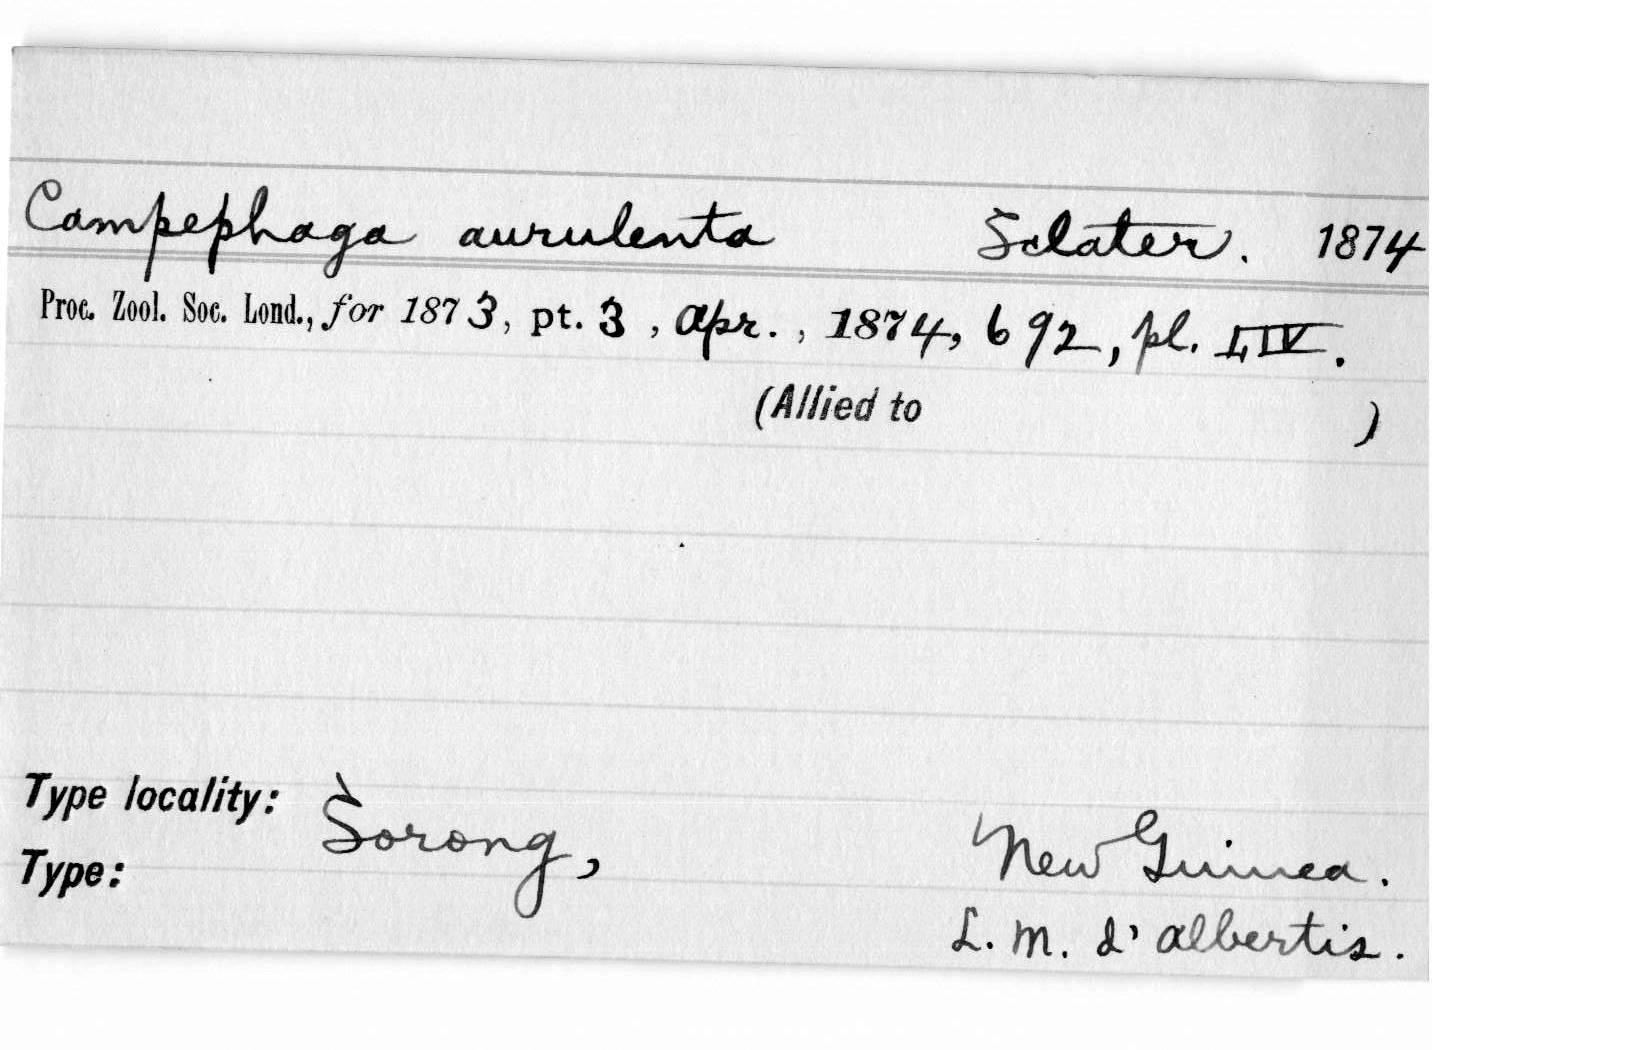 Campephaga aurulenta Sclater. 1874
Proc. Zool. Soc. Lond., for 1873, pt. 3, Apr., 1874, 692, pl. LIV.
(Allied to )
Type locality: Sorong, New Guinea.
Type: L. M. d'Albertis.